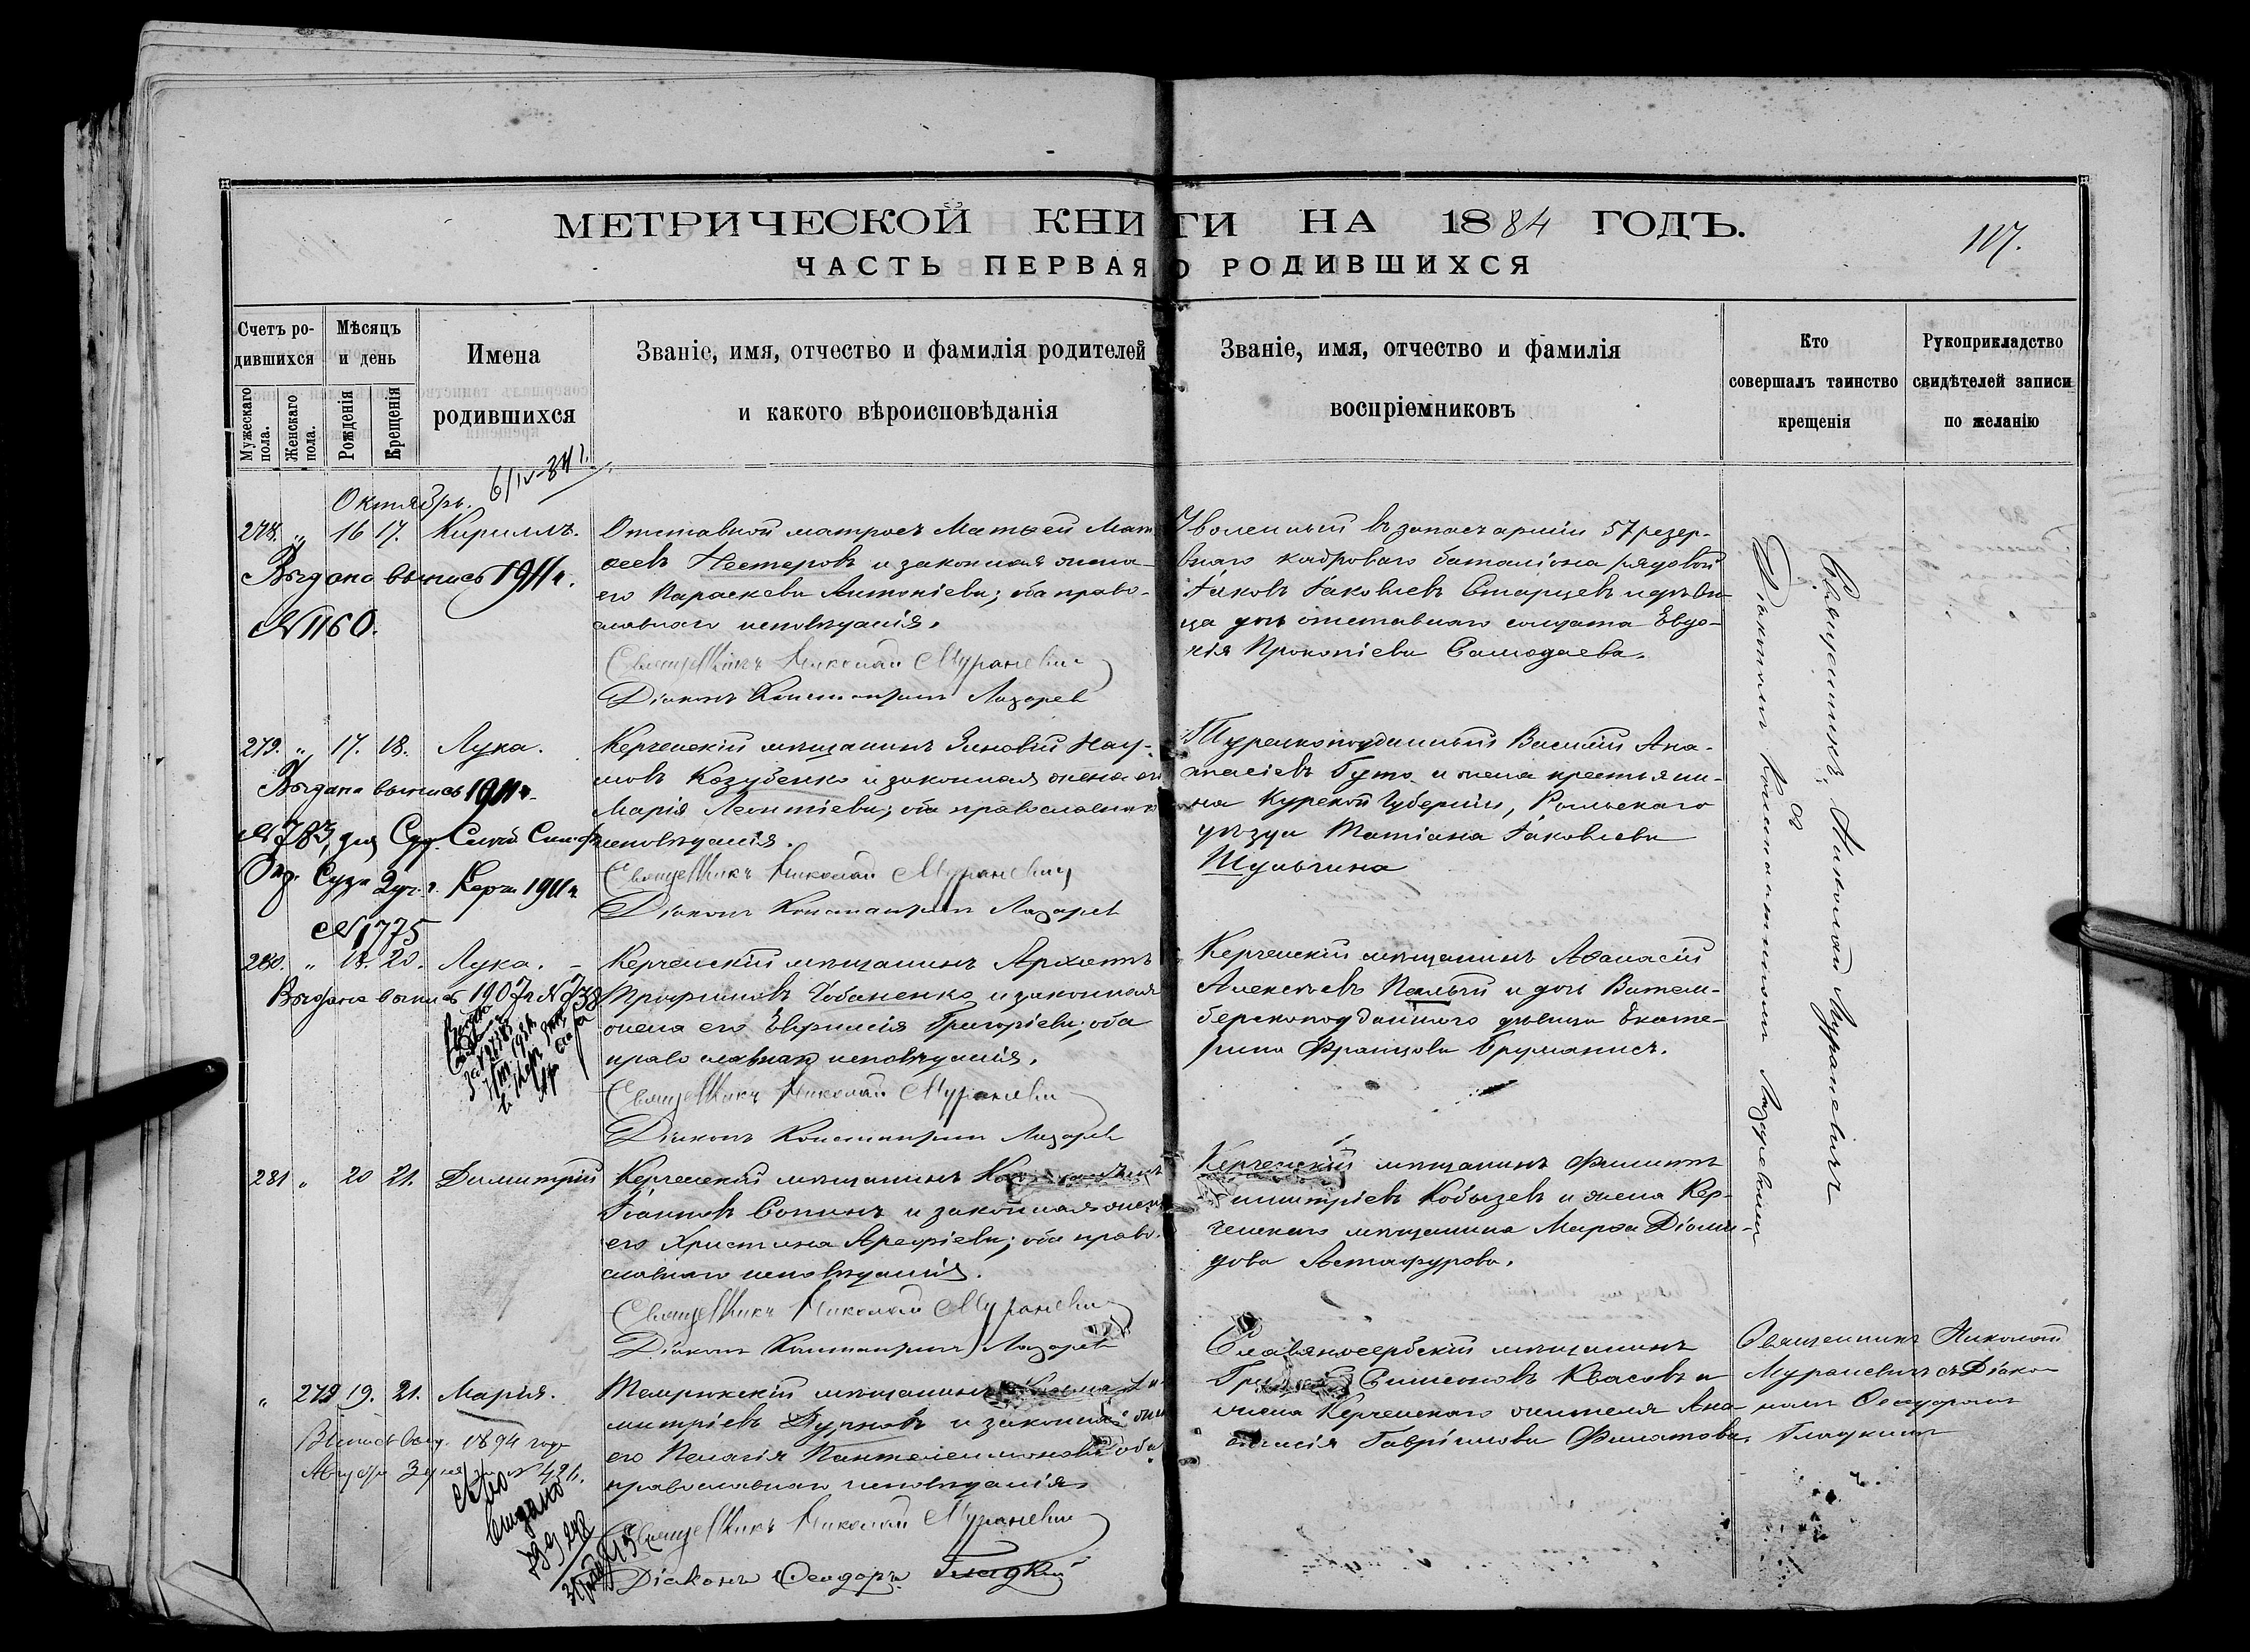 МЕТРИЧЕСКОЙ КНИГИ НА 1884 ГОДЪ.
117.
ЧАСТЬ ПЕРВАЯ О РОДИВШИХСЯ
Счетъ ро-
дившихся
Мужескаго пола.
Женскаго пола.
Мѣсяцъ
и день
Рожденія
Крещенія
Имена
родившихся
Званіе, имя, отчество и фамилія родителей
и какого вѣроисповѣданія
Званіе, имя, отчество и фамилія
воспріемниковъ
Кто
совершалъ таинство
крещенія
Рукоприкладство
свидѣтелей записи
по желанію
Октябрь.
278. " 16 17. Кириллъ.
Выдана выпись 1911 г.
№ 1160.
Отставной матросъ Матѳей Мат
ѳеевъ Нестеровъ и законная жена
его Параскева Антоніева; оба право-
славнаго исповѣданія.
Священникъ Николай Мураневич
Діаконъ Константин Лазарев
Уволенный въ запасъ арміи 57 резер-
внаго кадроваго баталіона рядовой
Іаковъ Іаковлевъ Старцевъ и дѣви-
ца дочь отставнаго солдата Евдо-
кія Прокопіева Самодаева.
279. " 17. 18. Лука.
Выдана выпись 1911 г.
№ 783, для
Суда 2 уч. г. Керчи 1911 г.
№ 1775
Керченскій мѣщанинъ Зиновій Нау-
мовъ Козубенко и законная жена его
Марія Леонтіева; оба православнаго
исповѣданія.
Священникъ Николай Мураневич
Діаконъ Константин Лазарев
Турецкоподданный Василій Ана-
стасіевъ Гуто и жена крестьяни-
на Курской Губерніи, Рыльскаго
уѣзда Татіана Іаковлева
Шульгина
280. " 18. 20. Лука.
Выдана выпись 1907 г. № 738
Керченскій мѣщанинъ Архиппъ
Трофимовъ Чобаненко и законная
жена его Евфимія Григоріева; оба
православнаго исповѣданія.
Священникъ Николай Мураневич
Діаконъ Константин Лазарев
Керченскій мѣщанинъ Аѳанасій
Алексѣевъ Палый и дочь Витем-
бергскоподданнаго дѣвица Екате-
рина Францова Бруманисъ.
281 " 20 21. Димитрій
Керченскій мѣщанинъ
Іоанновъ Сопинъ и законная жена
его Христина Арефіева; оба право-
славнаго исповѣданія.
Священникъ Николай Мураневич
Діаконъ Константин Лазарев
Керченскій мѣщанинъ Филиппъ
Димитріевъ Кобызевъ и жена Кер-
ченскаго мѣщанина Марѳа Діоми-
дова Астафурова.
Священникъ Николай Мураневичъ
съ
Діакономъ Константиномъ Лазаревымъ
" 272 19. 21. Марія.
Выпись выд. 1894 года
Августа
№ 421.
выдано
Темрюкскій мѣщанинъ Козма Ди
митріевъ Дурневъ и законная жена
его Пелагія Пантелеимонова оба
православнаго исповѣданія
Священникъ Николай Мураневич
Діаконъ Ѳеодоръ Гладкій
Славяносербскій мѣщанинъ
Симеоновъ Квасовъ и
жена Керченскаго жителя Ана-
стасія Гавріилова Филатова.
Священникъ Николай
Мураневичъ съ Діако-
номъ Ѳеодоромъ
Гладкимъ